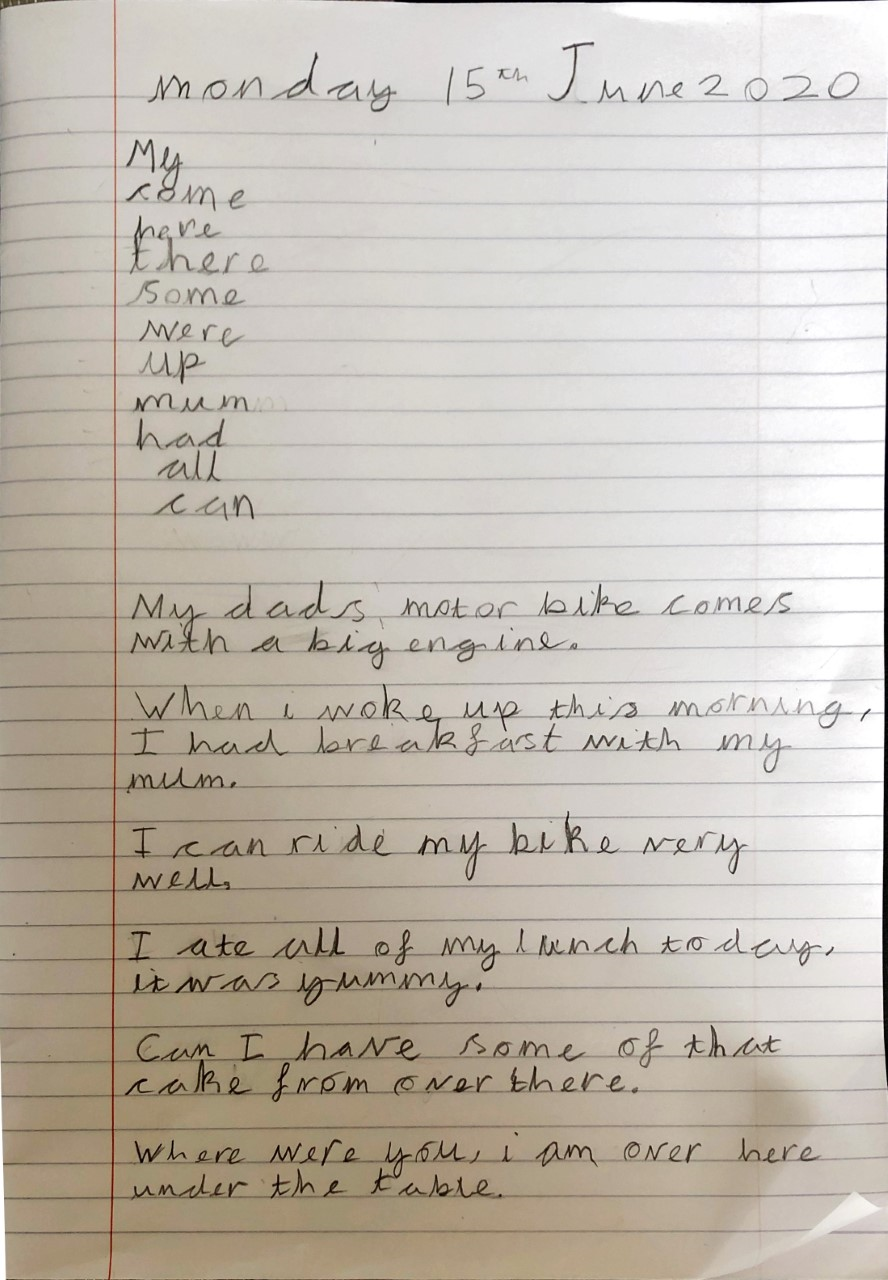 monday 15th June 2020
My
come
here
there
some
were
up
mum
had
all
can
My dads motor bike comes
with a big engine.
When i woke up this morning,
I had breakfast with my
mum.
I can ride my bike very
well.
I ate all of my lunch today,
it was yummy.
Can I have some of that
cake from over there.
Where were you, i am over here
under the table.